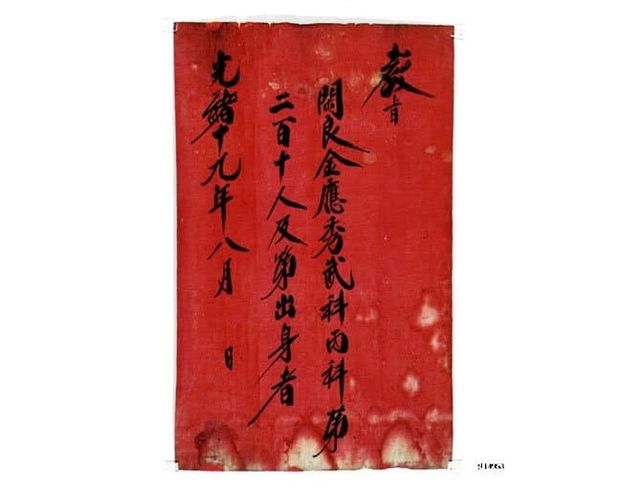 教旨
閑良金應秀武科丙科第
二百十人及第出身者
光緒十九年八月 日